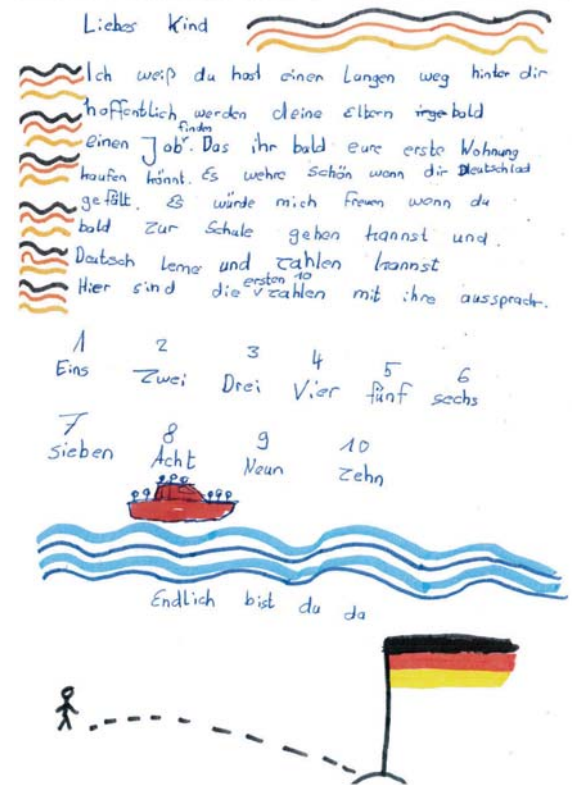 Liebes Kind
Ich weiß du hast einen Langen weg hinter dir
hoffentlich werden deine Eltern bald
einen Job finden. Das ihr bald eure erste Wohnung
kaufen könnt. Es wehre Schön wenn dir Deutschlad
gefält. Es würde mich freuen wenn du
bald zur Schule gehen kannst und
Deutsch lerne und zahlen kannst
Hier sind die ersten 10 zahlen mit ihre aussprach.
1 2 3 4 5 6
Eins Zwei Drei Vier fünf sechs
7 8 9 10
sieben Acht Neun Zehn
Endlich bist du da